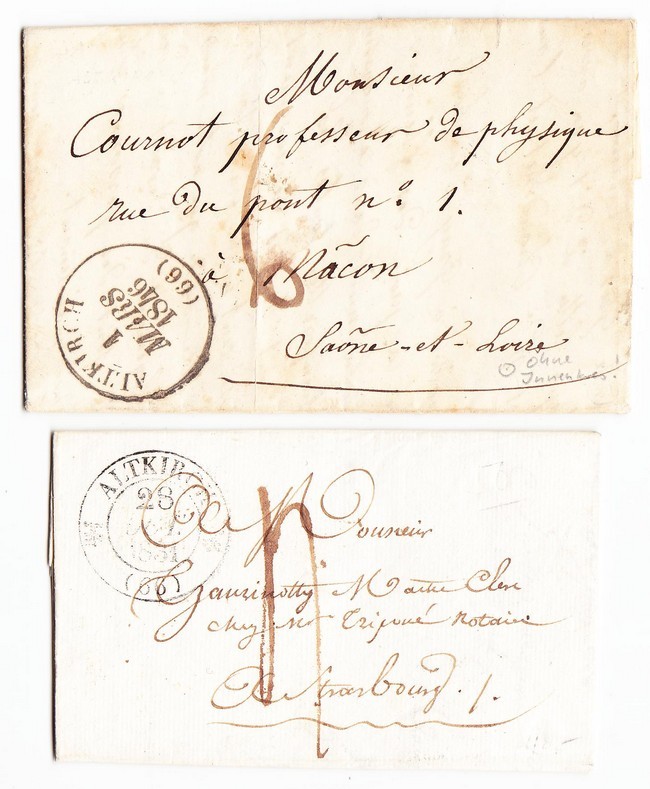 Monsieur
Cournot professeur de physique
rue du pont n° 1.
à Mâcon
Saône-et-Loire
ALTKIRCH
1
MARS
1846
(66)
6
ohne
ALTKIRCH
28
(66)
Monsieur
Maitre Clerc
chez Mr Notaire
A Strasbourg